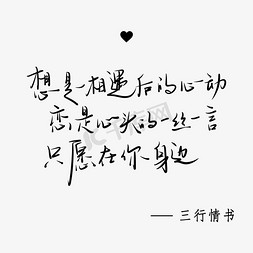 想是一相遇后的心动
恋是心头的一丝一言
只愿在你身边
—— 三行情书